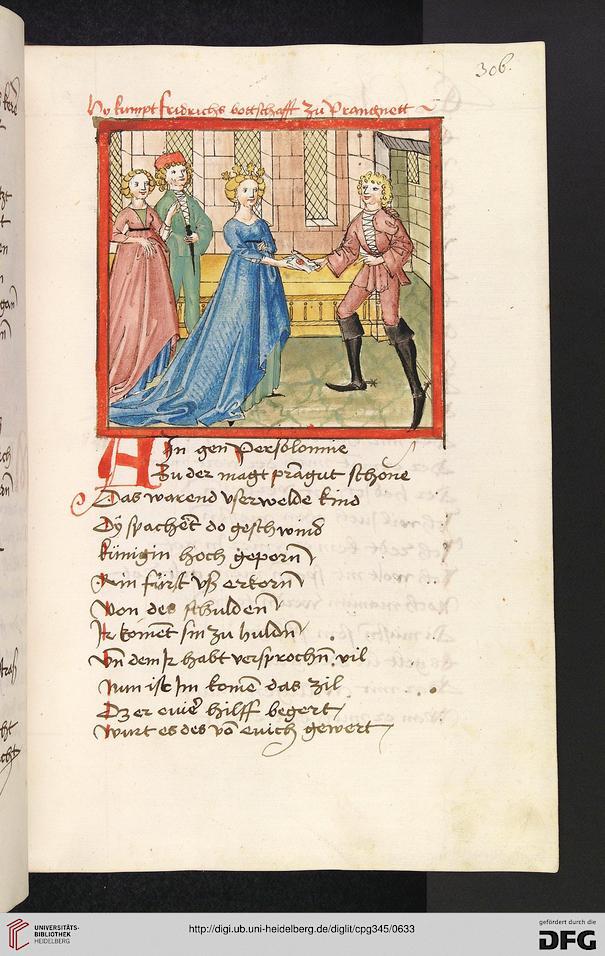 306.
Hy kumpt fridrichs bottschafft zu Pramgnett
Hin gen Persolomie
Zu der magt pragut schone
Das warend vserwelde kind
Dÿ sprachet do geschwind
kúnigin hoch geporn
Ain fúrst vß erkorn
Von des schulden
Ir koment sin zu huldn
Vn dem Ir habt versprochn vil
Nun ist Im kome das zil
Dz er hilff begert
Wurt es des vo euch gewert
UNIVERSITÄTS-
BIBLIOTHEK
HEIDELBERG
http://digi.ub.uni-heidelberg.de/diglit/cpg345/0633
gefördert durch die
DFG